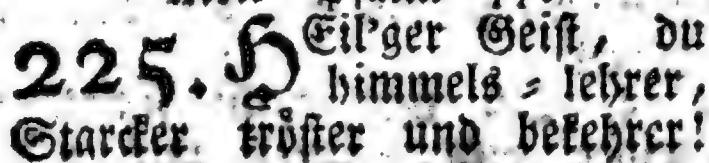 225. HEil'ger Geist, du
himmels = lehrer,
Starcker tröster und bekehrer!